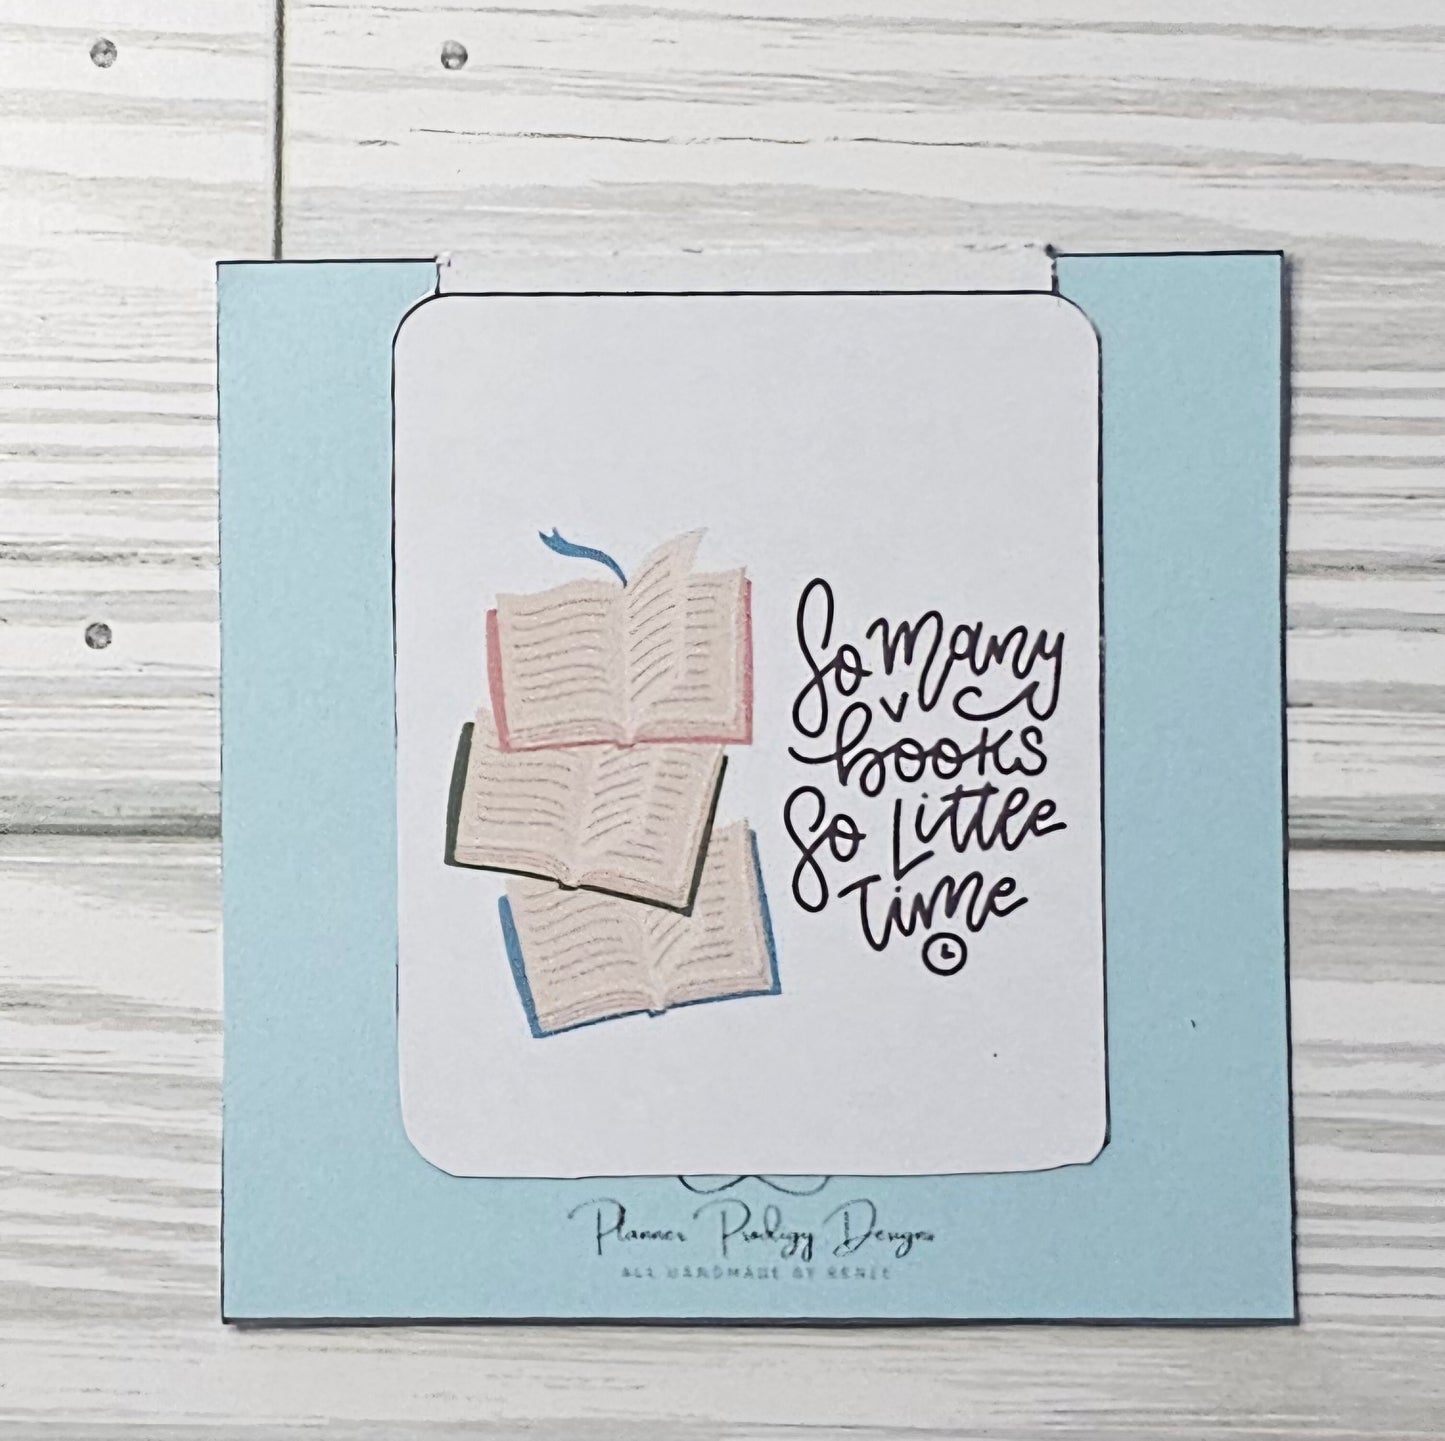 So many
books
So Little
Time
Planner Prodigy Designs
ALL HANDMADE BY RENEE